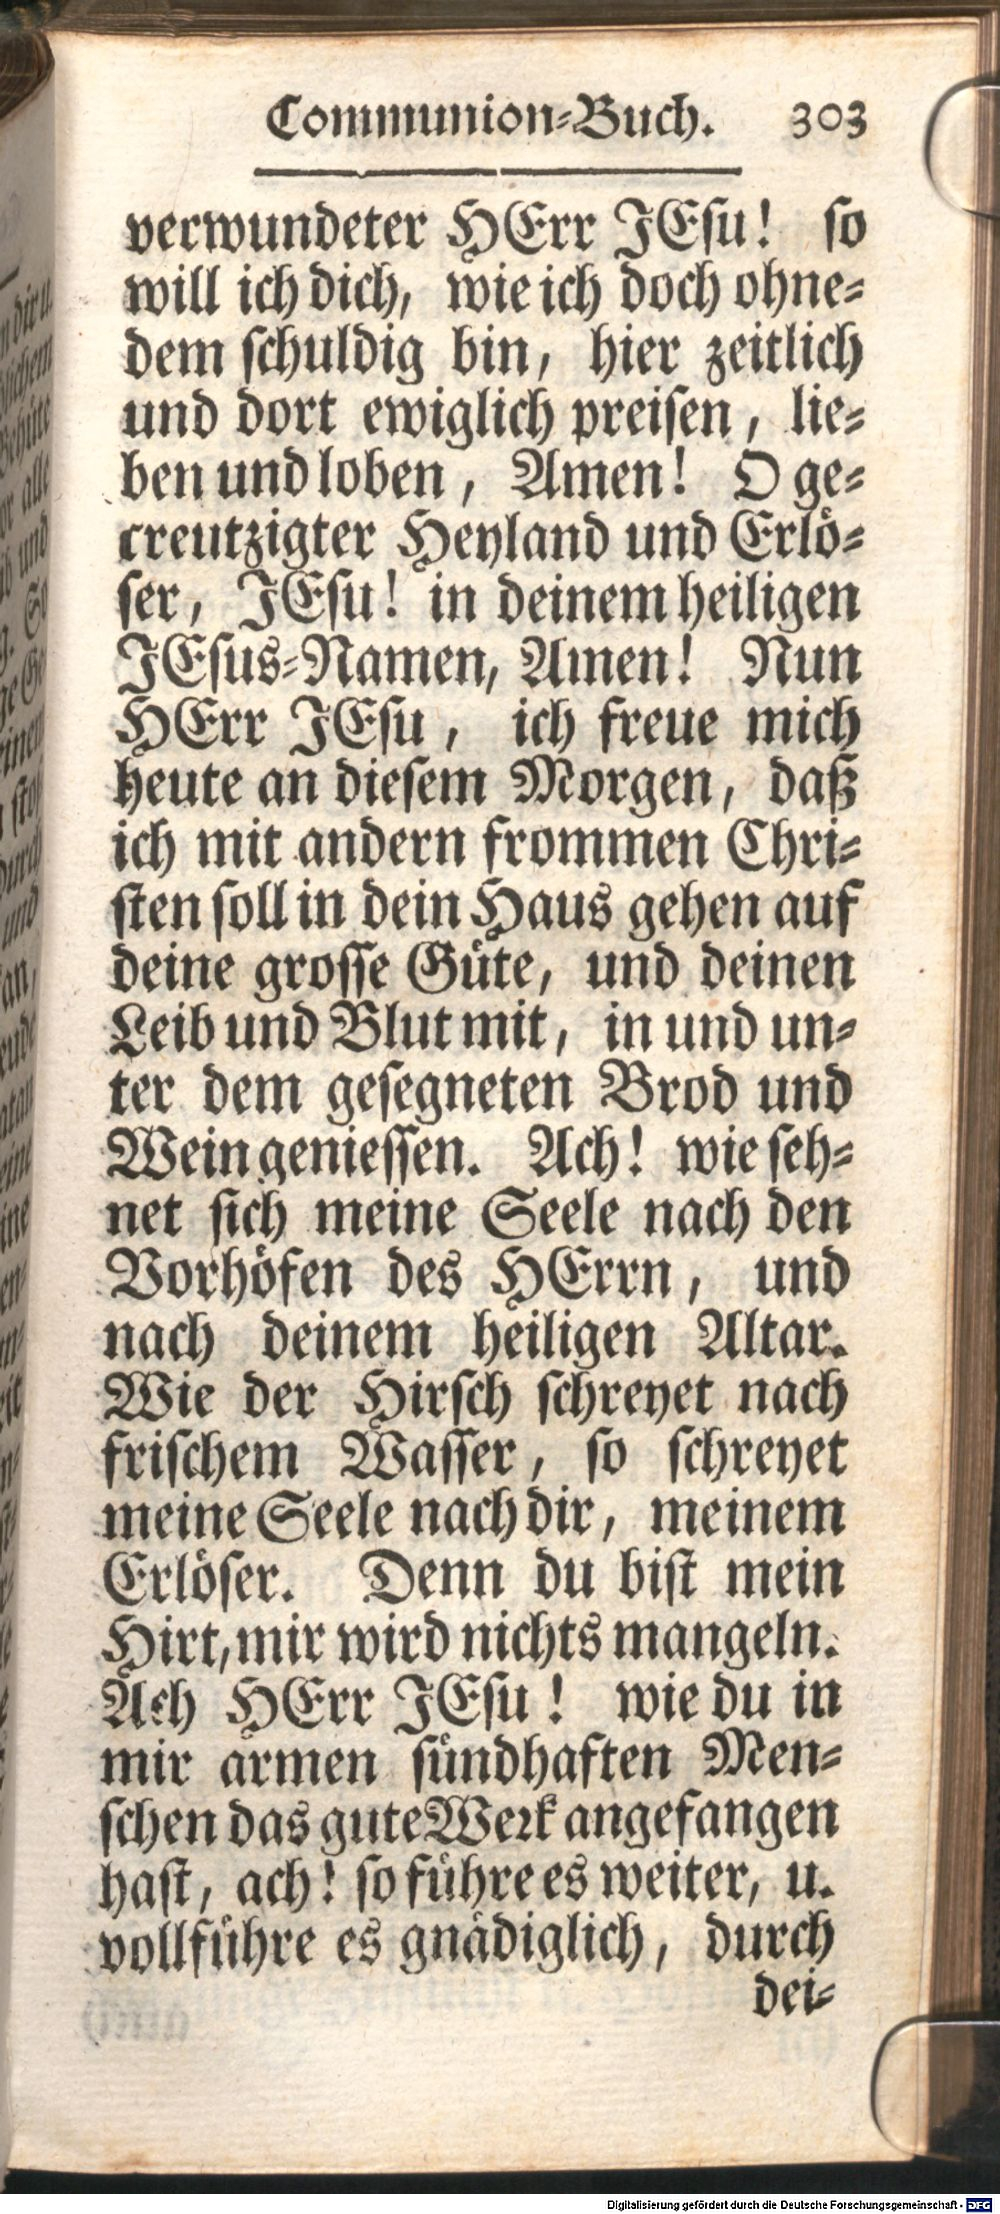 Communion-Buch. 303
verwundeter HErr JEsu! so
will ich dich, wie ich doch ohne-
dem schuldig bin, hier zeitlich
und dort ewiglich preisen, lie-
ben und loben, Amen! O ge-
creutzigter Heyland und Erlö-
ser, JEsu! in deinem heiligen
JEsus-Namen, Amen! Nun
HErr JEsu, ich freue mich
heute an diesem Morgen, daß
ich mit andern frommen Chri-
sten soll in dein Haus gehen auf
deine grosse Güte, und deinen
Leib und Blut mit, in und un-
ter dem gesegneten Brod und
Wein geniessen. Ach! wie seh-
net sich meine Seele nach den
Vorhöfen des HErrn, und
nach deinem heiligen Altar.
Wie der Hirsch schreyet nach
frischem Wasser, so schreyet
meine Seele nach dir, meinem
Erlöser. Denn du bist mein
Hirt, mir wird nichts mangeln.
Ach HErr JEsu! wie du in
mir armen sündhaften Men-
schen das gute Werk angefangen
hast, ach! so führe es weiter, u.
vollführe es gnädiglich, durch
dei-
Digitalisierung gefördert durch die Deutsche Forschungsgemeinschaft - DFG